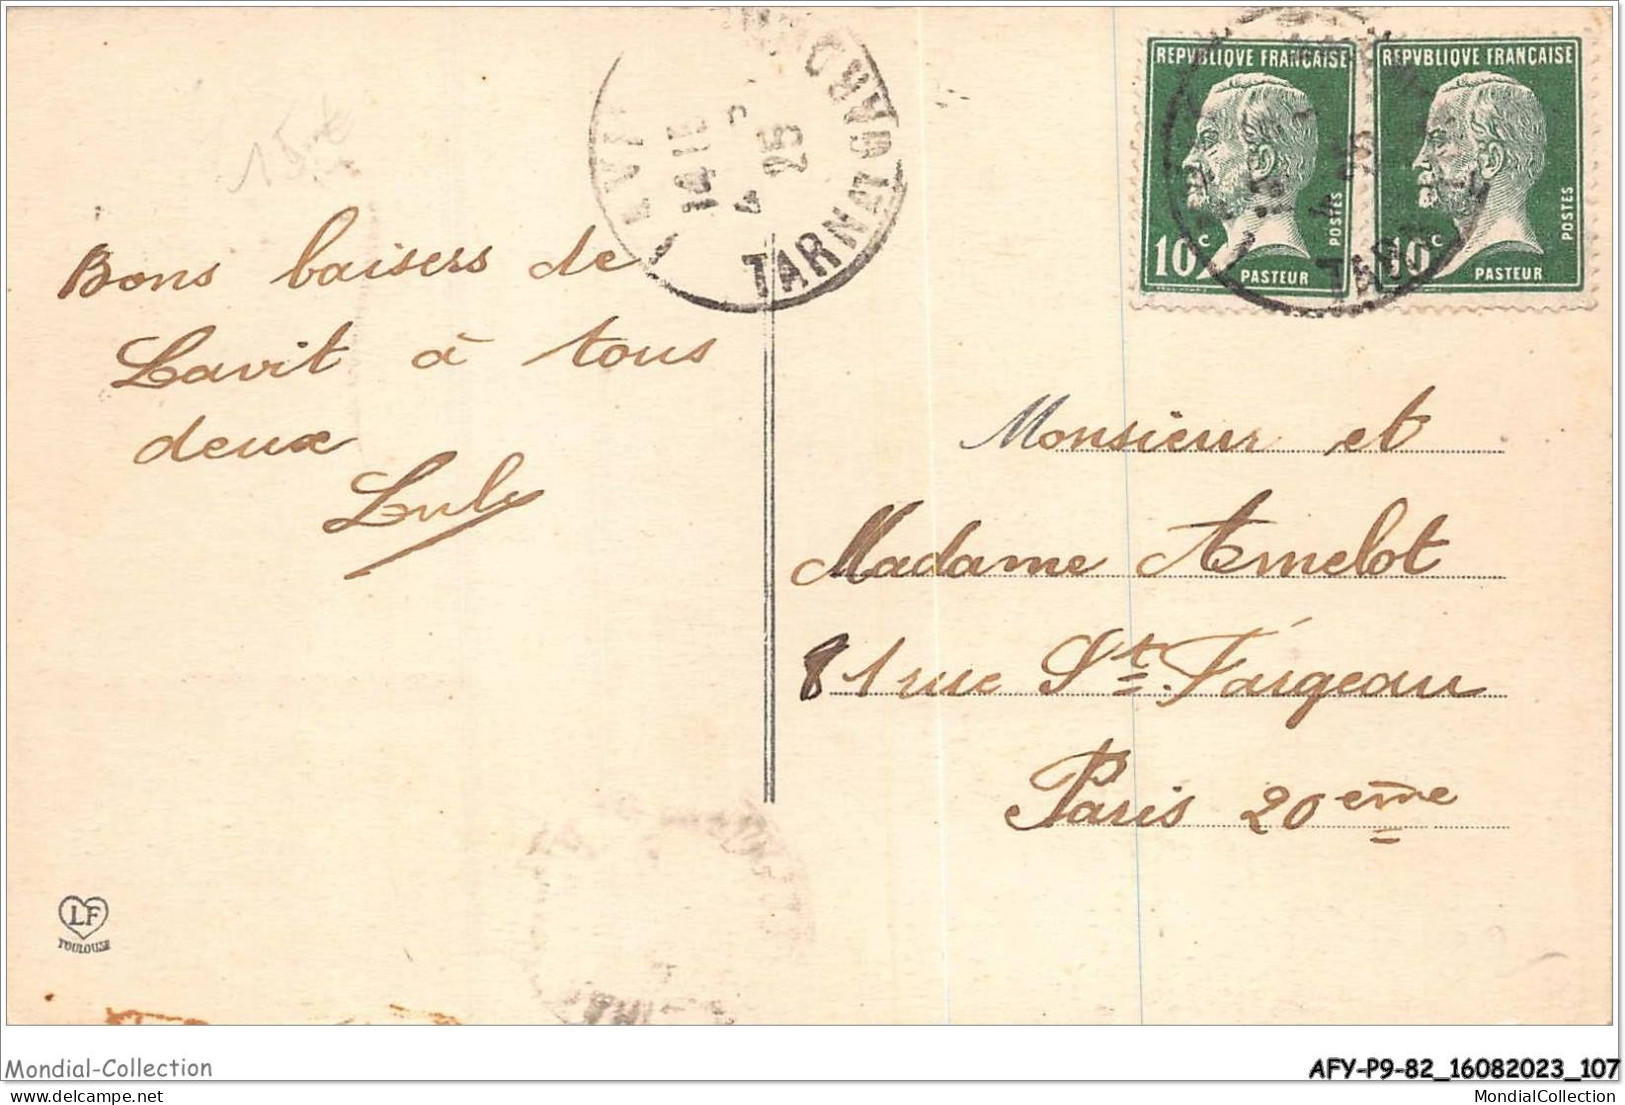 15
LAVI
DE LOMAGNE
14 15
4
25
TARN ET
REPVBLIQVE FRANÇAISE
10c
POSTES
PASTEUR
REPVBLIQVE FRANÇAISE
10c
POSTES
PASTEUR
Bons baisers de
Lavit à tous
deux
Luly
Monsieur et
Madame Amelot
81 rue St. Fargeau
Paris 20eme
LF
TOULOUSE
Mondial-Collection
AFY-P9-82_16082023_107
MondialCollection